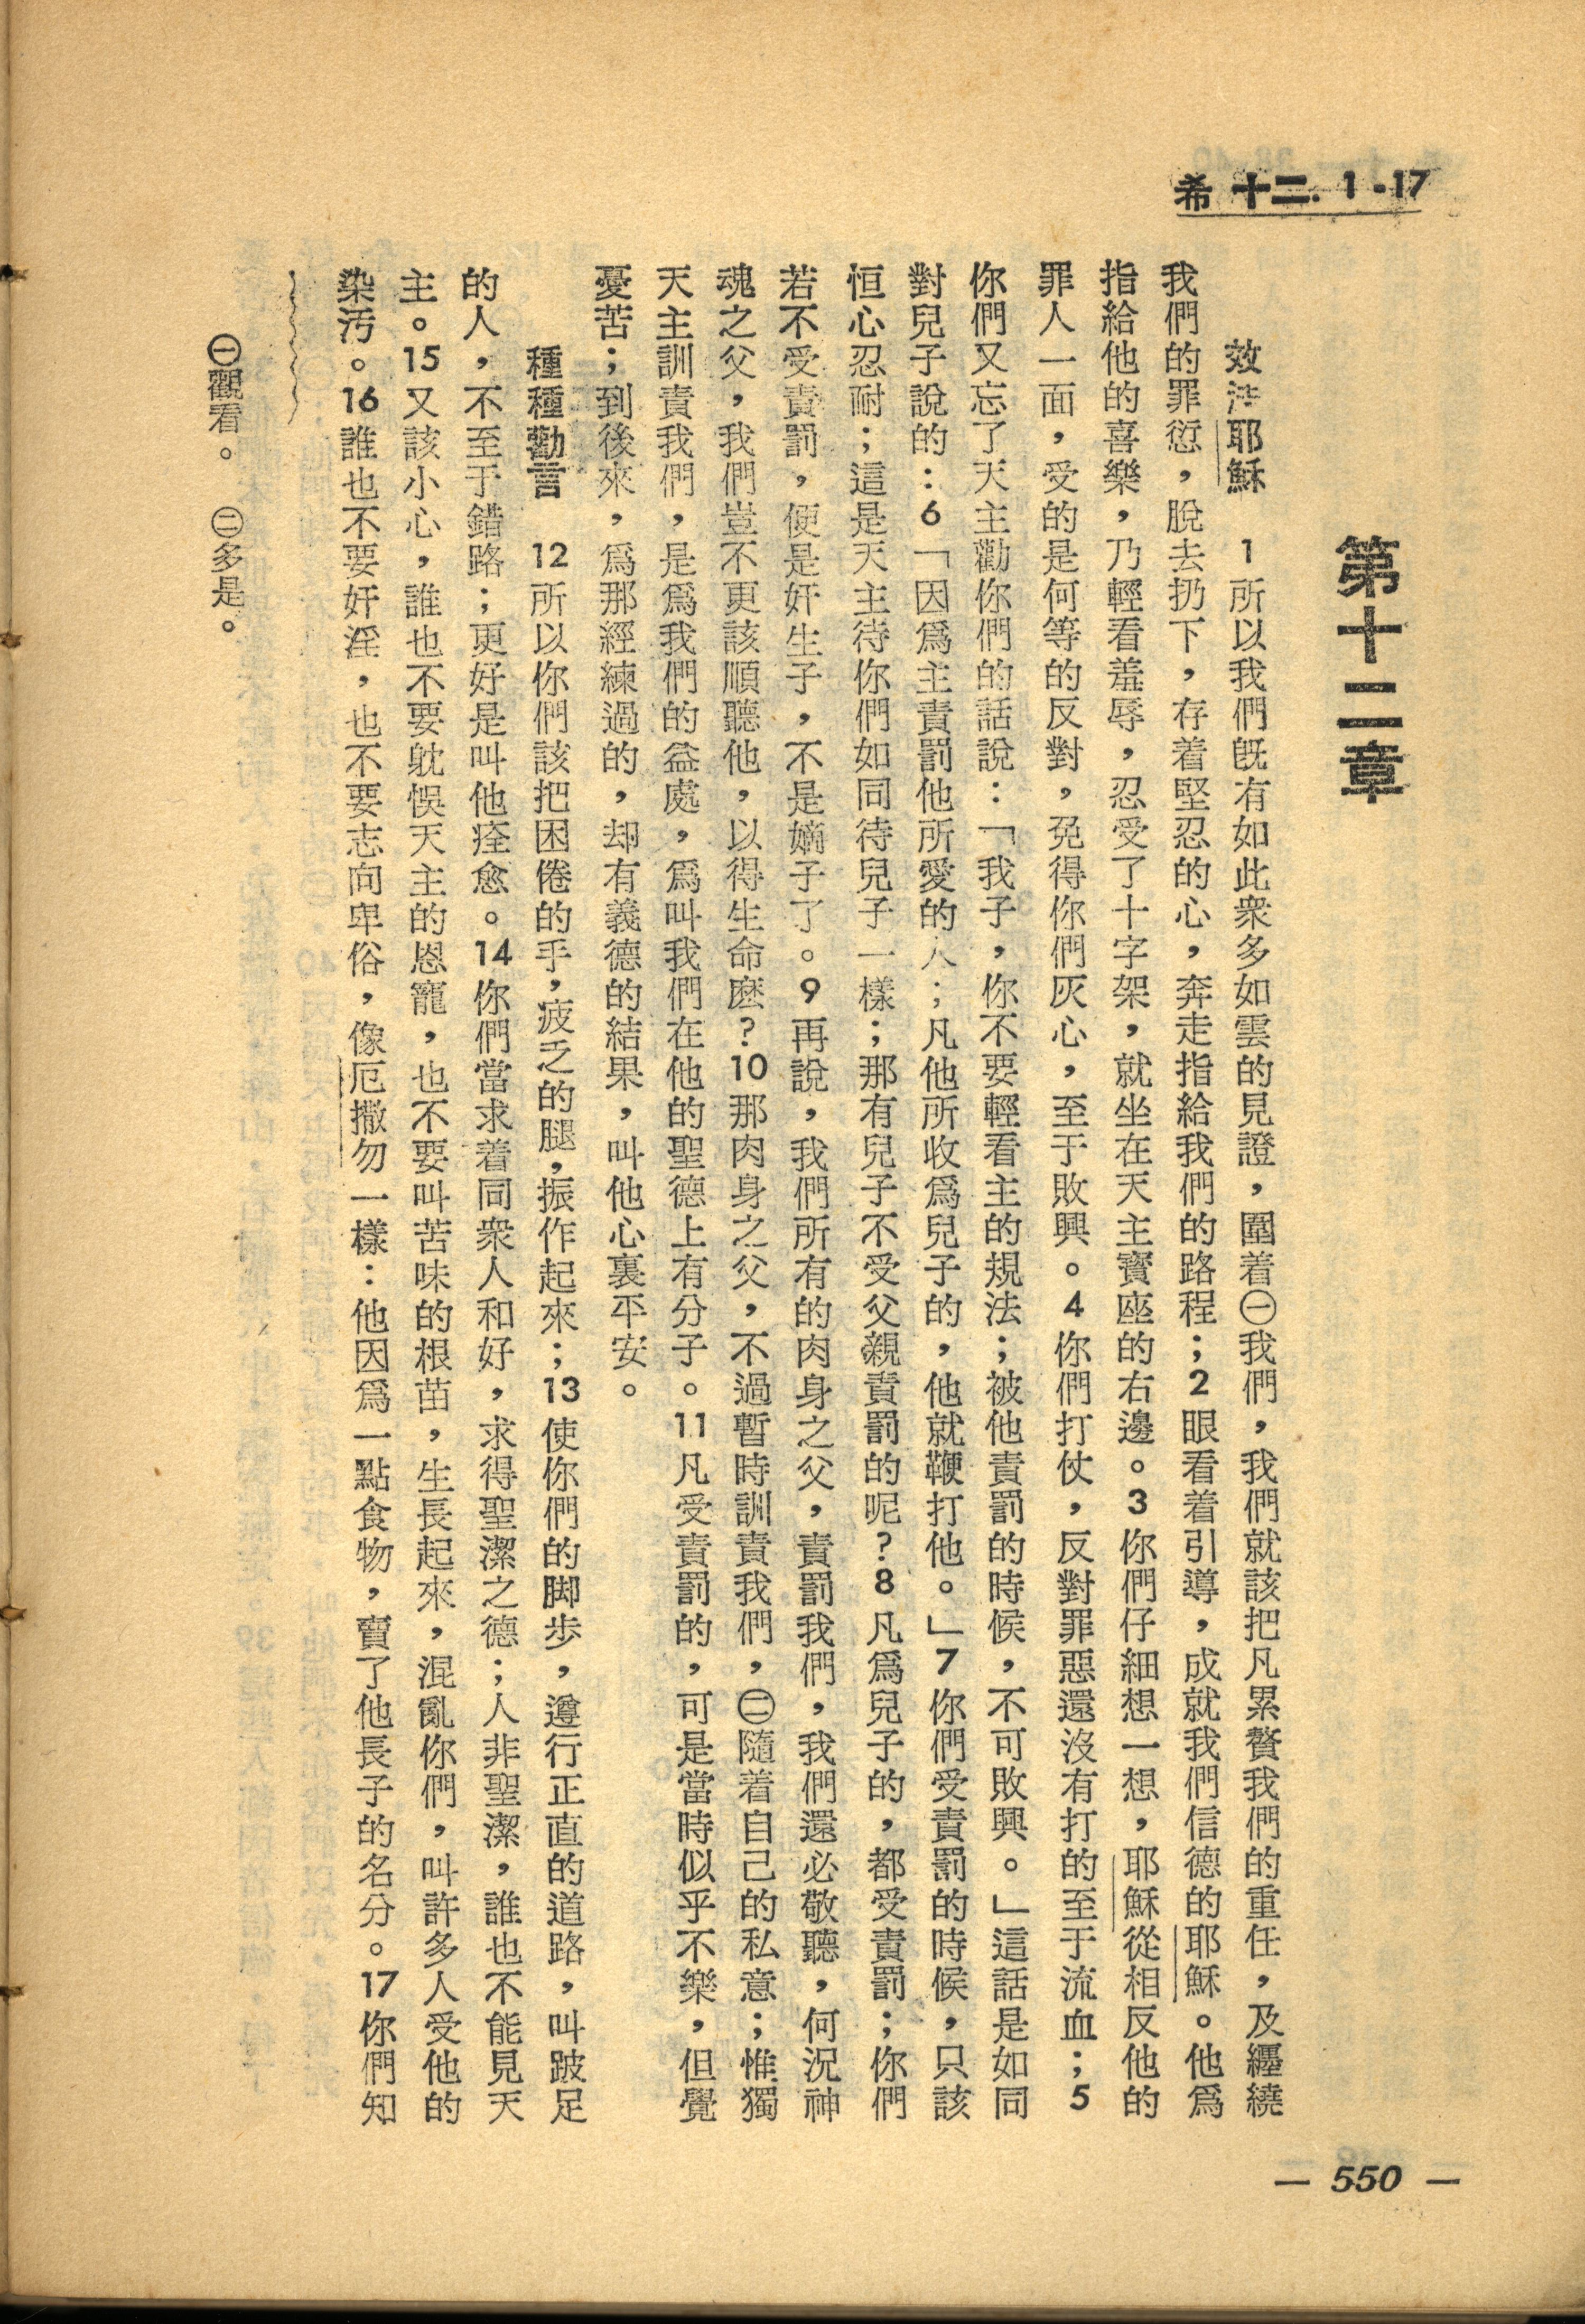 希 十二. 1 - 17
第十二章
效法耶穌　1 所以我們旣有如此衆多如雲的見證，圍着㊀我們，我們就該把凡累贅我們的重任，及纒繞
我們的罪愆，脫去扔下，存着堅忍的心，奔走指給我們的路程；2 眼看着引導，成就我們信德的耶穌。他爲
指給他的喜樂，乃輕看羞辱，忍受了十字架，就坐在天主寶座的右邊。3 你們仔細想一想，耶穌從相反他的
罪人一面，受的是何等的反對，免得你們灰心，至于敗興。4 你們打仗，反對罪惡還沒有打的至于流血；5
你們又忘了天主勸你們的話說：「我子，你不要輕看主的規法；被他責罰的時候，不可敗興。」這話是如同
對兒子說的：6「因爲主責罰他所愛的人；凡他所收爲兒子的，他就鞭打他。」7 你們受責罰的時候，只該
恒心忍耐；這是天主待你們如同待兒子一樣；那有兒子不受父親責罰的呢？8 凡爲兒子的，都受責罰；你們
若不受責罰，便是奸生子，不是嫡子了。9 再說，我們所有的肉身之父，責罰我們，我們還必敬聽，何況神
魂之父，我們豈不更該順聽他，以得生命麽？10 那肉身之父，不過暫時訓責我們，㊁隨着自己的私意；惟獨
天主訓責我們，是爲我們的益處，爲叫我們在他的聖德上有分子。11 凡受責罰的，可是當時似乎不樂，但覺
憂苦；到後來，爲那經練過的，却有義德的結果，叫他心裏平安。
種種勸言　12 所以你們該把困倦的手，疲乏的腿，振作起來；13 使你們的脚步，遵行正直的道路，叫跛足
的人，不至于錯路；更好是叫他痊愈。14 你們當求着同衆人和好，求得聖潔之德；人非聖潔，誰也不能見天
主。15 又該小心，誰也不要躭悞天主的恩寵，也不要叫苦味的根苗，生長起來，混亂你們，叫許多人受他的
染汚。16 誰也不要奸淫，也不要志向卑俗，像厄撒勿一樣：他因爲一點食物，賣了他長子的名分。17 你們知
㊀觀看。　㊁多是。
— 550 —